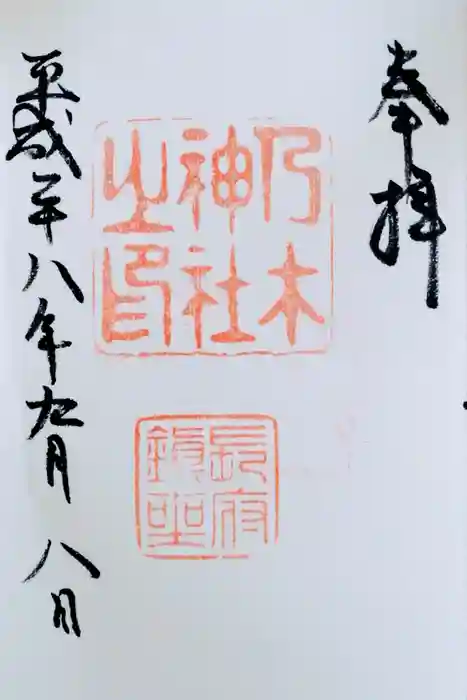 奉拝
乃木
神社
之印
長府
平成二十八年九月八日